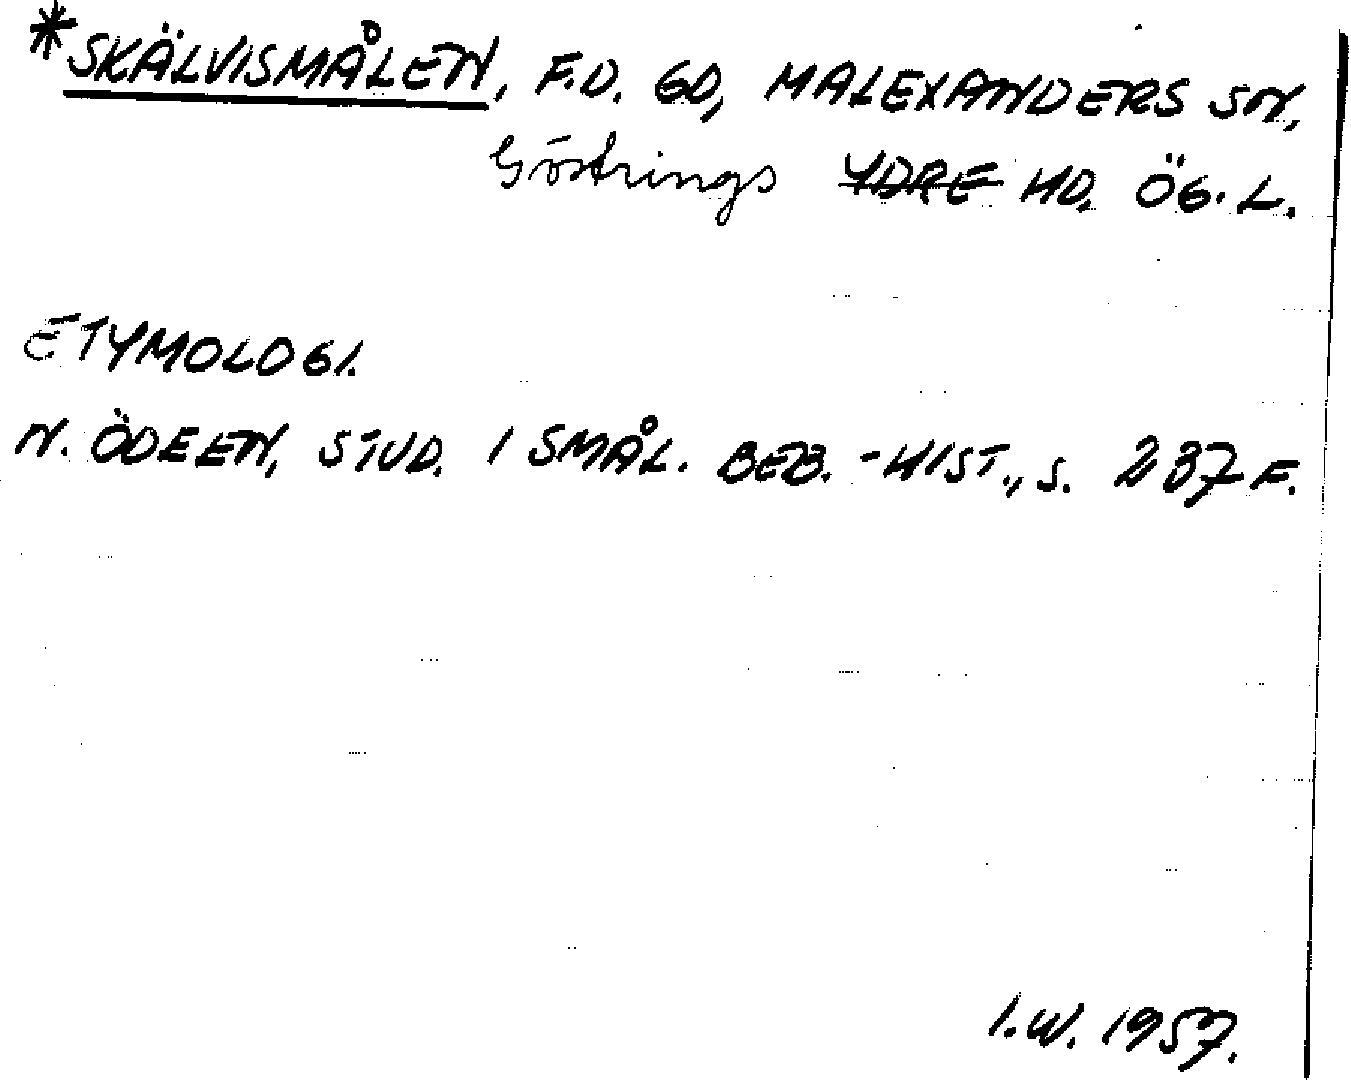 *SKÄLVISMÅLEN, F.D. GD, MALEXANDERS SN,
Göstrings YDRE HD. ÖG. L.
ETYMOLOGI.
N. ÖDEEN, STUD. I SMÅL. BEB.-HIST., S. 287 F.
I.W. 1957.